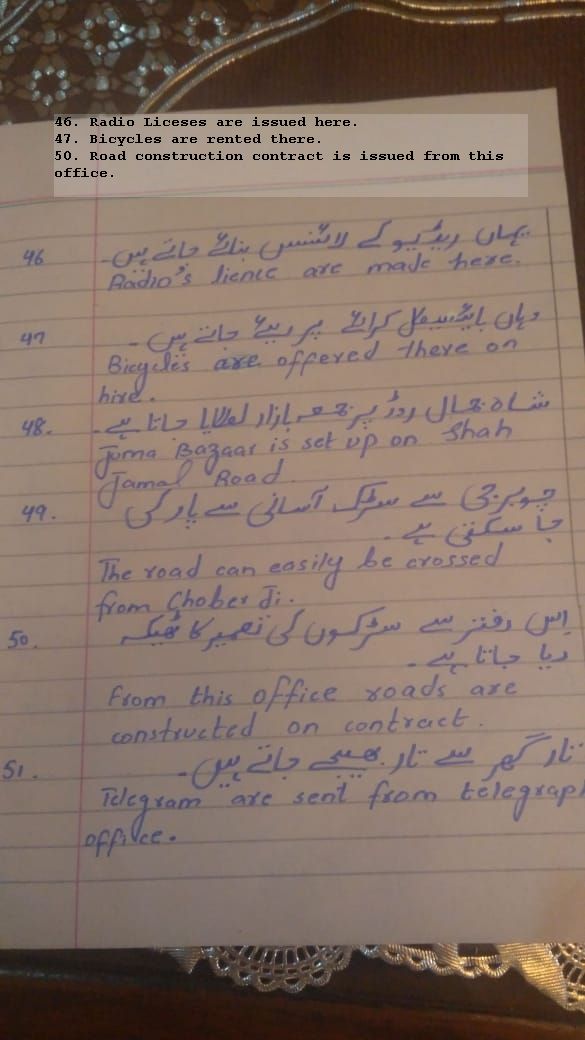 46. Radio Liceses are issued here.
47. Bicycles are rented there.
50. Road construction contract is issued from this
office.
46 یہاں ریڈیو کے لائسنس بنائے جاتے ہیں۔
Radio's lience are made here.
47 وہاں بائیسیکل کرائے پر دیئے جاتے ہیں۔
Bicycles are offered there on
hire.
48. شاہ جمال روڈ پر جمعہ بازار لگایا جاتا ہے۔
Juma Bazaar is set up on Shah
Jamal Road.
49. چوبرجی سے سڑک آسانی سے پار کی
جا سکتی ہے۔
The road can easily be crossed
from Chober Ji.
50. اِس دفتر سے سڑکوں کی تعمیر کا ٹھیکہ
دیا جاتا ہے۔
From this office roads are
constructed on contract.
51. تار گھر سے تار بھیجے جاتے ہیں۔
Telegram are sent from telegraph
office.